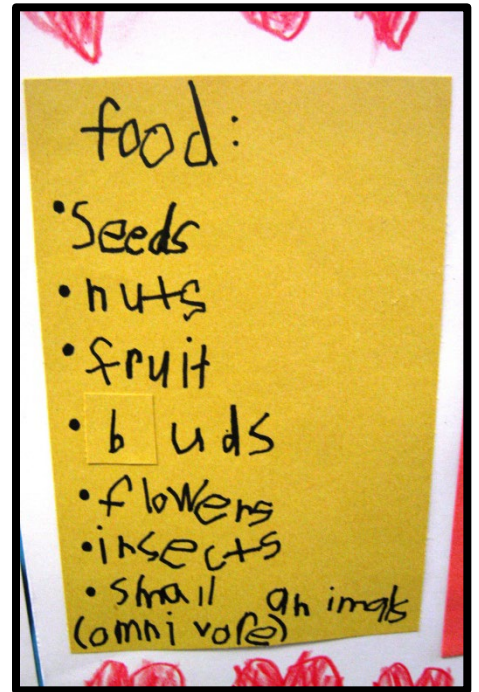 food:
•Seeds
•nuts
•fruit
•buds
•flowers
•insects
•small animals
(omnivore)